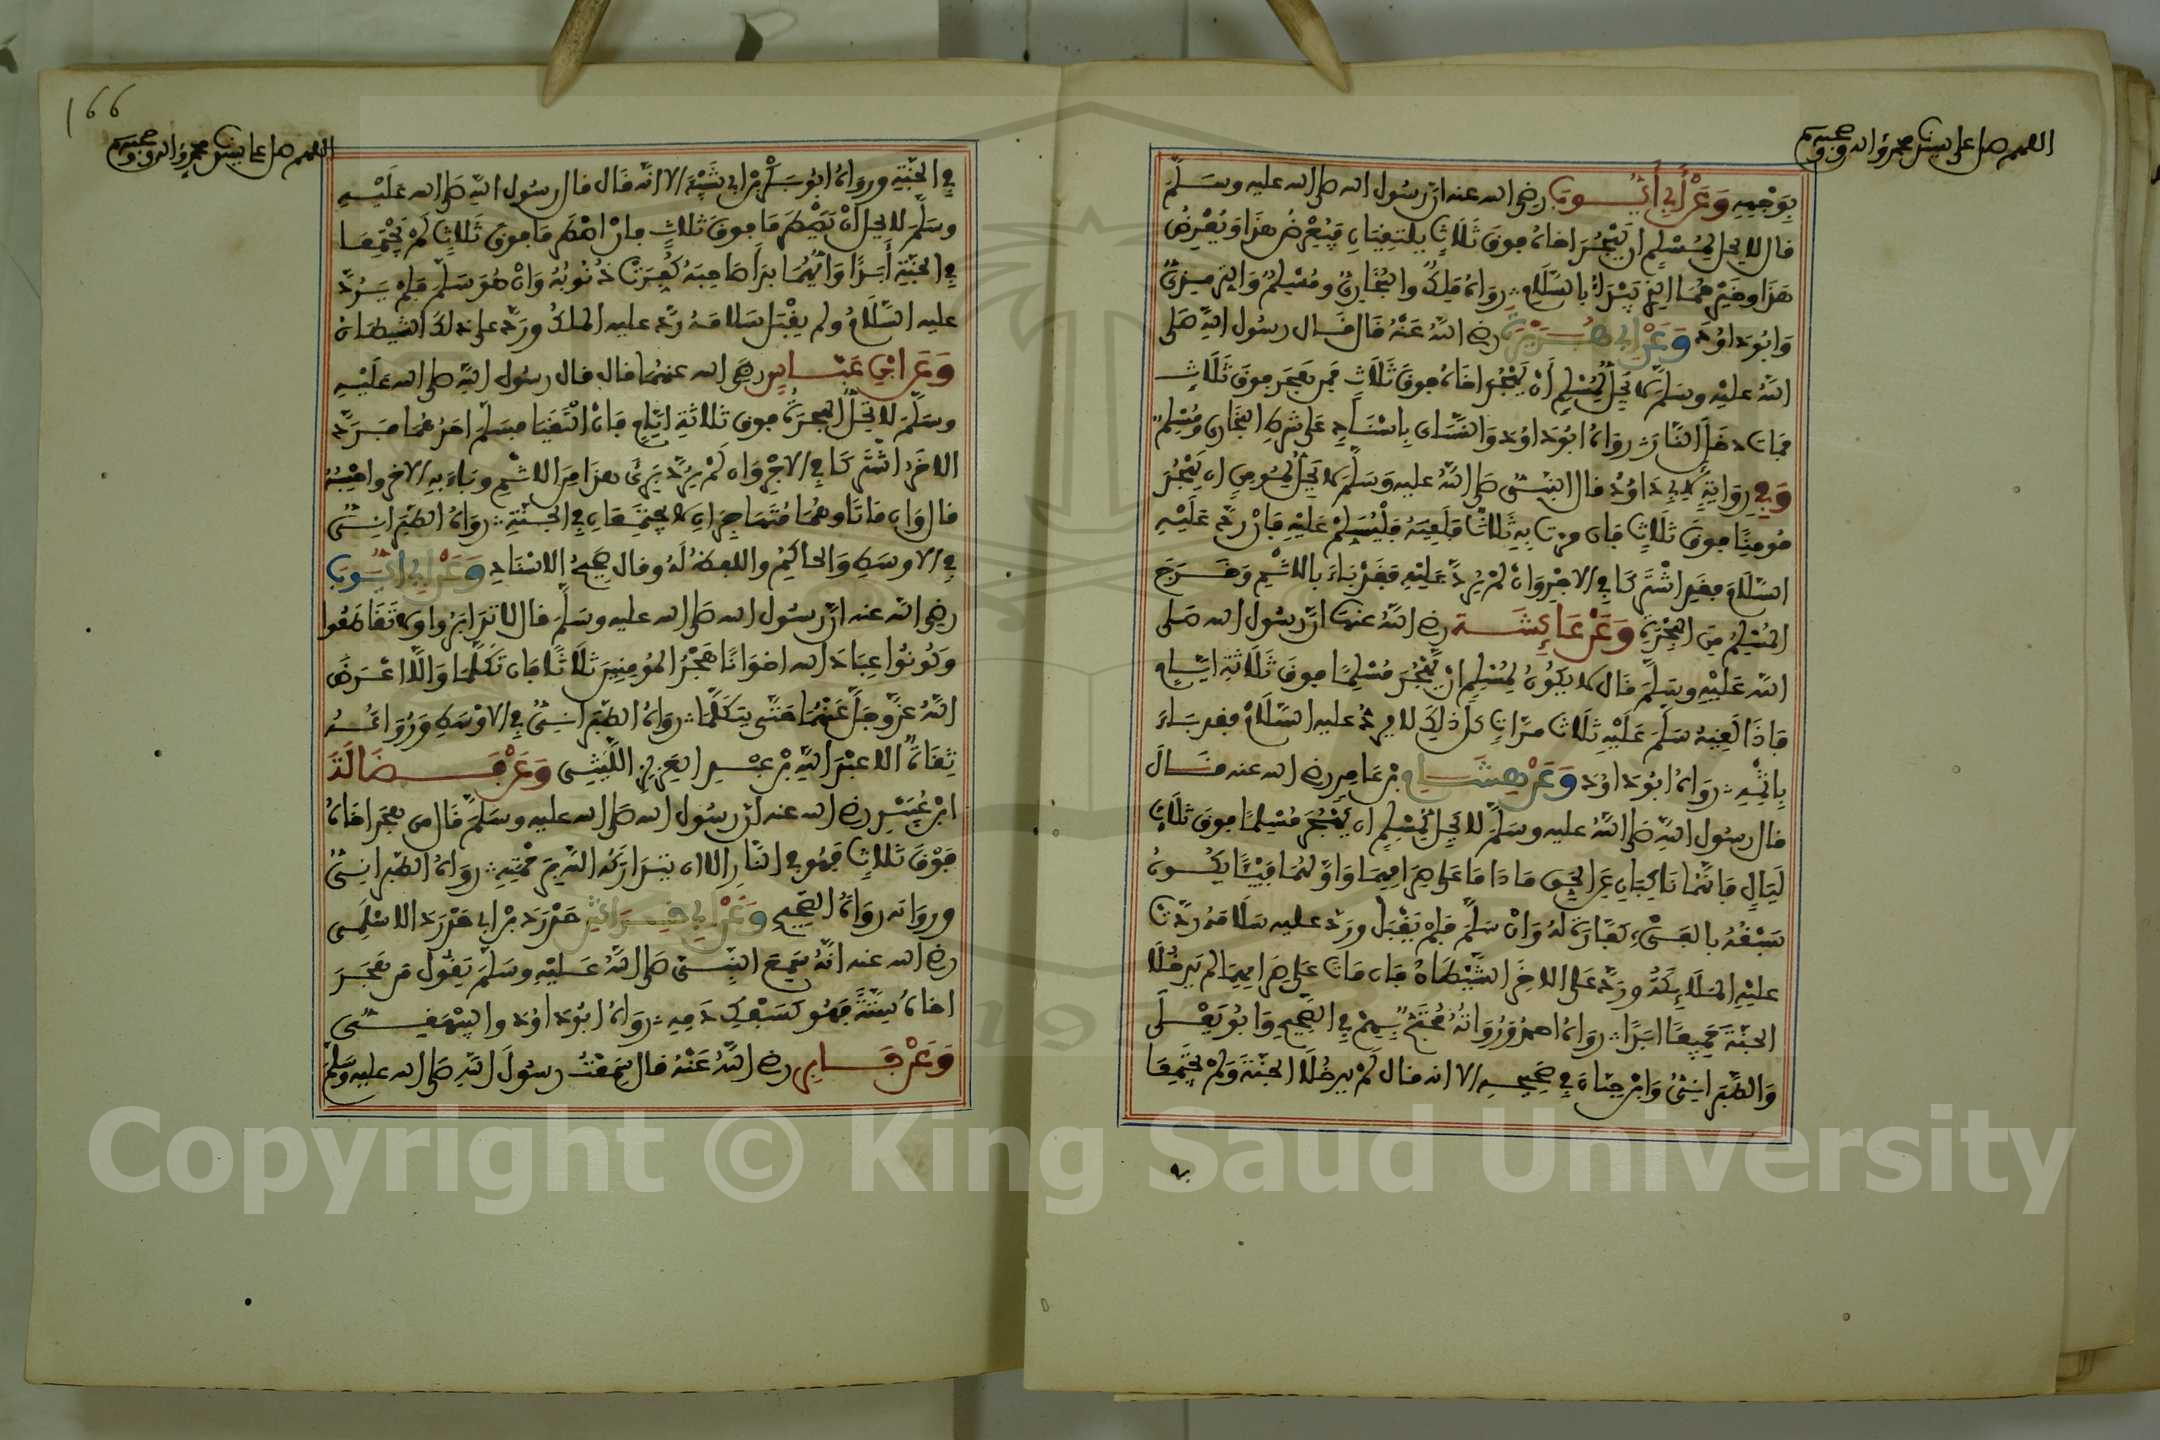 اللهم صل على سيدنا محمد وءاله وصحبه
بوجهه وعن أبي أيوب رضي الله عنه ان رسول الله صلى الله عليه وسلم
قال لا يحل لمسلم ان يهجر اخاه فوق ثلاث يلتقيان فيعرض هذا ويعرض
هذا وخيرهما الذي يبدأ بالسلام رواه ملك والبخاري ومسلم والترمذي
وابو داود وعن أبي هريرة رضي الله عنه قال قال رسول الله صلى
الله عليه وسلم لا يحل لمسلم أن يهجر اخاه فوق ثلاث فمن هجر فوق ثلاث
فمات دخل النار رواه ابو داود والنسائي باسناد على شرط البخاري ومسلم
وفي رواية لابي داود قال النبي صلى الله عليه وسلم لا يحل لمومن ان يهجر
مومنا فوق ثلاث فان مرت به ثلاث فلقيه فليسلم عليه فان رد عليه
السلام فقد اشتركا في الاجر وان لم يرد عليه فقد باء بالاثم وخرج
المسلم من الهجرة وعن عائشة رضي الله عنها ان رسول الله صلى
الله عليه وسلم قال لا يكون لمسلم ان يهجر مسلما فوق ثلاثة ايام
فاذا لقيه سلم عليه ثلاث مرات كل ذلك لا يرد عليه السلام فقد باء
باثمه رواه ابو داود وعن هشام بن عامر رضي الله عنه قال
قال رسول الله صلى الله عليه وسلم لا يحل لمسلم ان يهجر مسلما فوق ثلاث
ليال فانهما ناكبان عن الحق ما داما على صرامهما واولهما فيئا يكون
سبقه بالفيء كفارة له وان سلم فلم يقبل ورد عليه سلامه ردت
عليه الملائكة ورد على الاخر الشيطان فان ماتا على صرامهما لم يدخلا
الجنة جميعا ابدا رواه احمد ورواته محتج بهم في الصحيح وابو يعلى
والطبراني وابن حبان في صحيحه الا انه قال لم يدخلا الجنة ولم يجتمعا
166
اللهم صل على سيدنا محمد وءاله وصحبه
في الجنة ورواه ابو بكر بن ابي شيبة الا انه قال قال رسول الله صلى الله عليه
وسلم لا يحل أن يصطرما فوق ثلاث فان اصطرما فوق ثلاث لم يجتمعا
في الجنة أبدا وأيهما بدأ صاحبه كفرت ذنوبه وان هو سلم فلم يرد
عليه السلام ولم يقبل سلامه رد عليه الملك ورد على ذلك الشيطان
وعن ابن عباس رضي الله عنهما قال قال رسول الله صلى الله عليه
وسلم لا تحل الهجرة فوق ثلاثة ايام فان التقيا فسلم احدهما فرد
الاخر اشتركا في الاجر وان لم يرد برئ هذا من الاثم وباء به الاخر واحسبه
قال وان ماتا وهما متهاجران لا يجتمعان في الجنة رواه الطبراني
في الاوسط والحاكم واللفظ له وقال صحيح الاسناد وعن أبي أيوب
رضي الله عنه ان رسول الله صلى الله عليه وسلم قال لا تدابروا ولا تقاطعوا
وكونوا عباد الله اخوانا هجر المومنين ثلاثا فان تكلما والا اعرض
الله عز وجل عنهما حتى يتكلما رواه الطبراني في الاوسط ورواته
ثقات الا عبد الله بن عبد العزيز الليثي وعن فضالة
ابن عبيد رضي الله عنه ان رسول الله صلى الله عليه وسلم قال من هجر اخاه
فوق ثلاث فهو في النار الا ان يتداركه الله برحمته رواه الطبراني
ورواته رواة الصحيح وعن أبي خراش حدرد بن ابي حدرد الاسلمي
رضي الله عنه انه سمع النبي صلى الله عليه وسلم يقول من هجر
اخاه سنة فهو كسفك دمه رواه ابو داود والبيهقي
وعن جابر رضي الله عنه قال سمعت رسول الله صلى الله عليه وسلم
Copyright © King Saud University